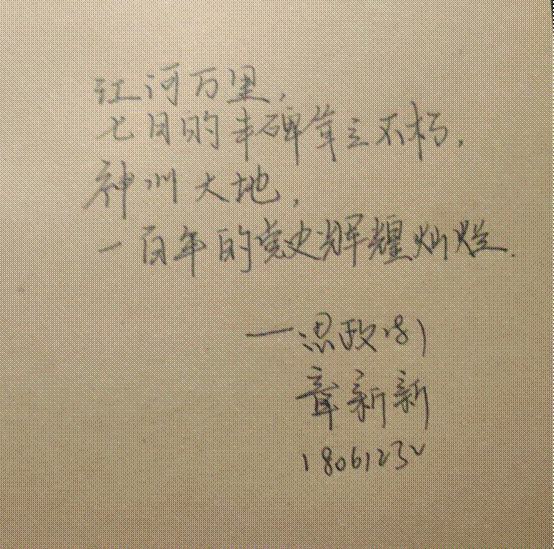 江河万里，
七月的丰碑耸立不朽，
神州大地，
一百年的党史辉耀灿烂.
——思政181
章新新
18061232